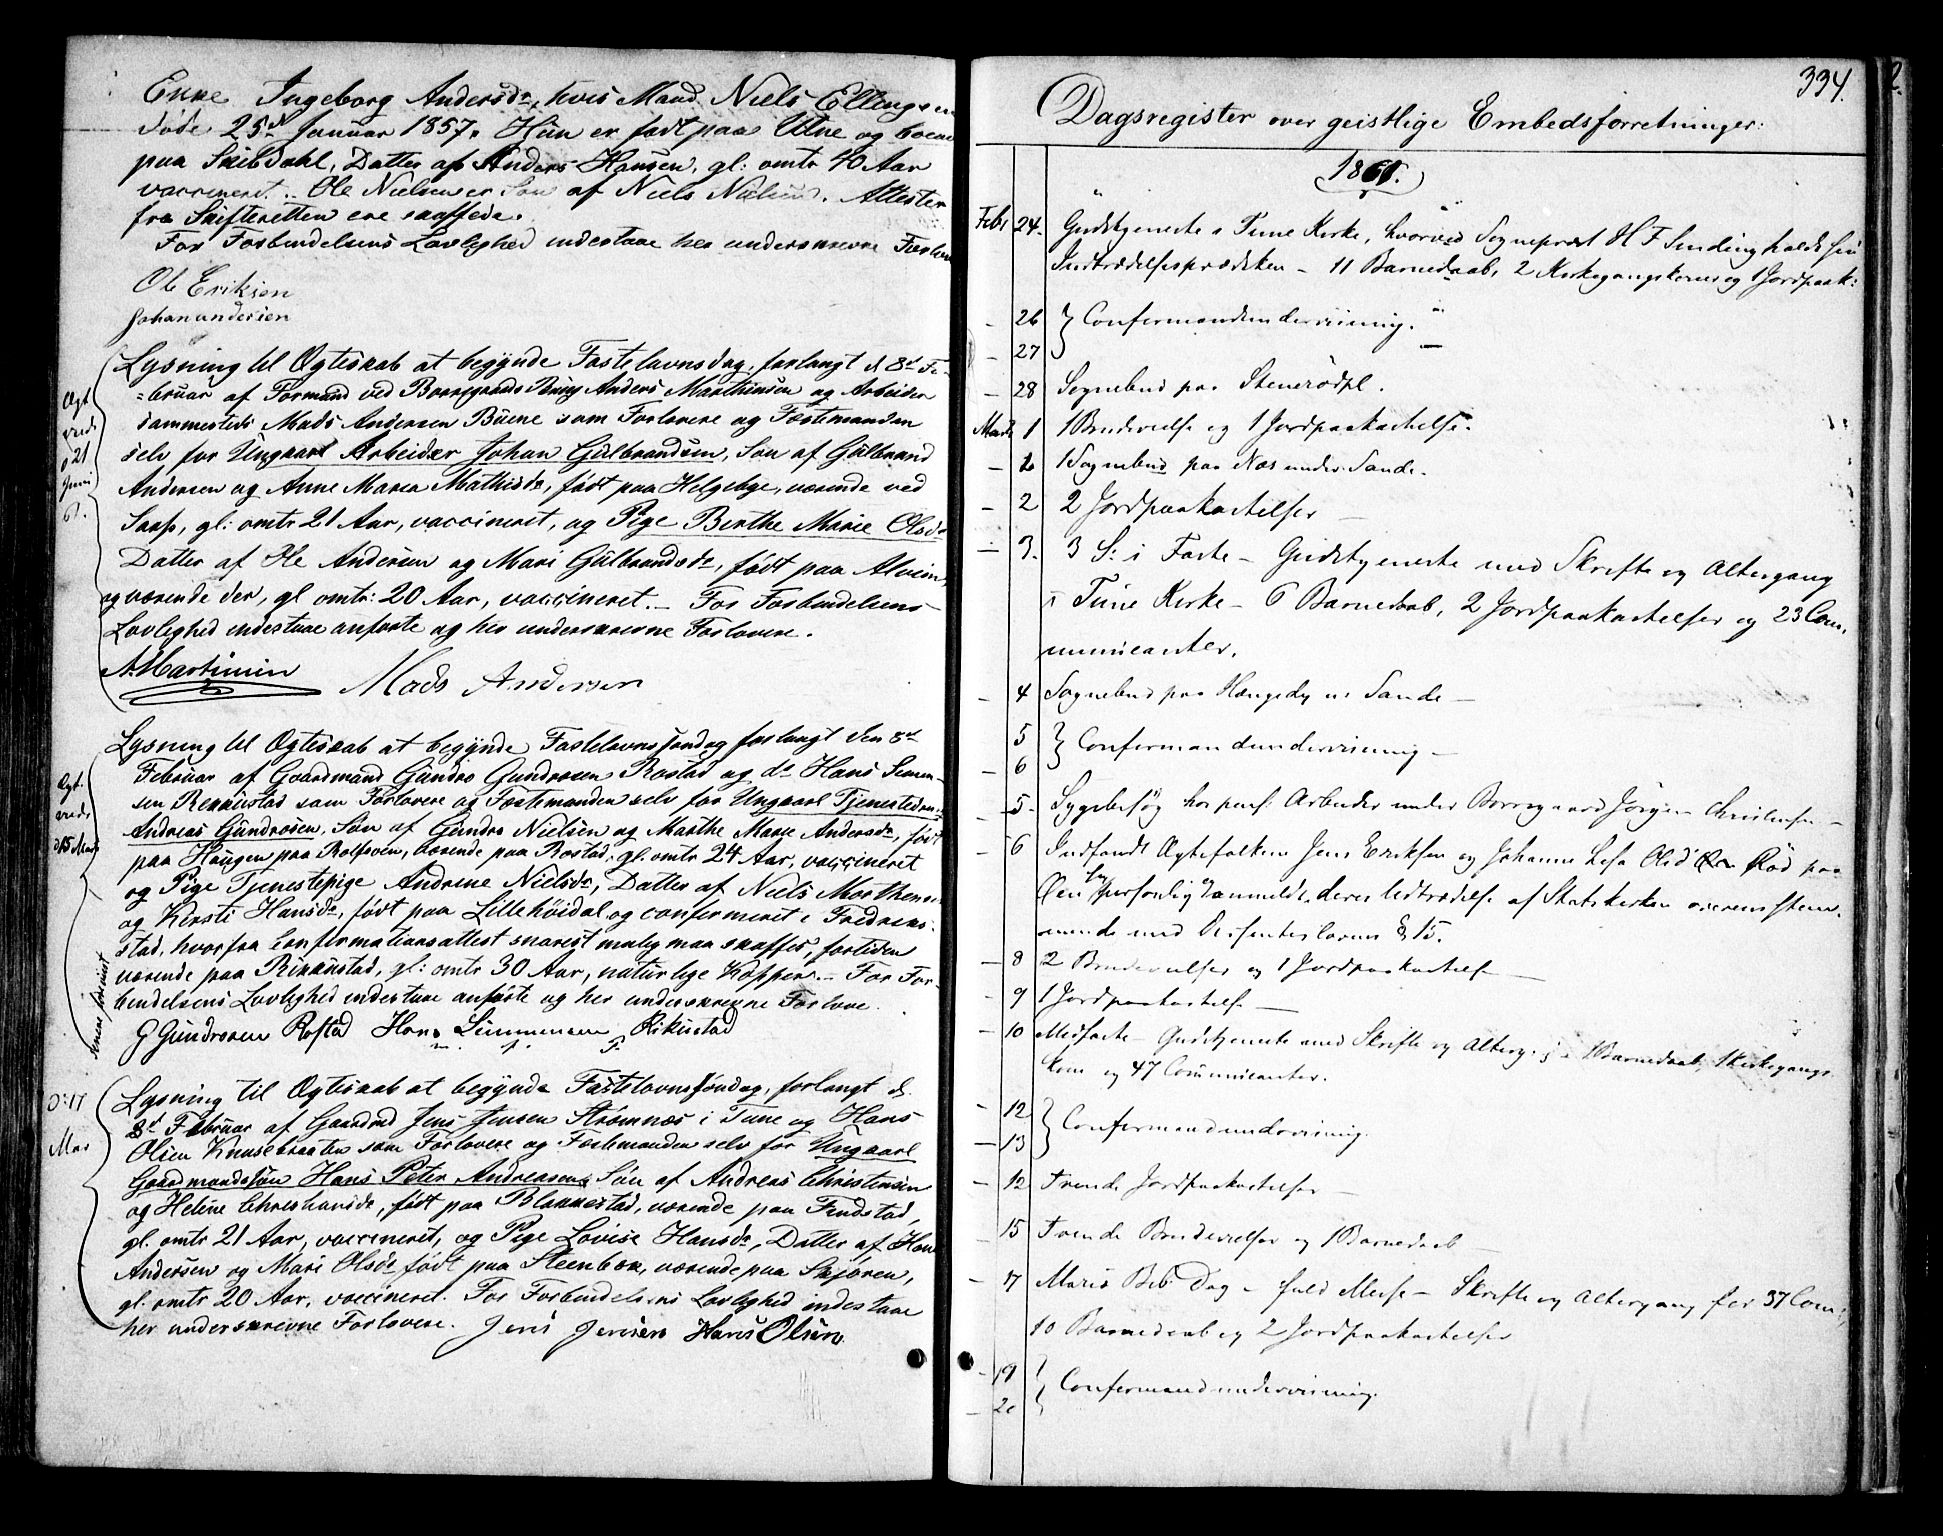 Enke Ingeborg Andersdr, hvis Mand Niels Ellingsen
døde 25d Januar 1857. Hun er født paa Utne og boende
paa Skibdahl, Datter af Anders Hansen, gl: omtr 40 Aar
vaccineret. Ole Nielsen er Søn af Niels Nielsen. Attester
fra Skifteretten ere skaffede.
For Forbindelsens Lovlighed indestaae her underskrevne Forlov
Ole Eriksen
Johan andersen
Lysning til Ægteskab at begynde Fastelavnsdag, forlangt d 8d Fe-
bruar af Formand ved Borregaards Brug Anders Marthinsen og Arbeider
sammesteds Mads Andersen Buene som Forlovere og Festemanden
selv for Ungkarl Arbeider Johan Gulbrandsen, Søn af Gulbrand
Andersen og Anne Maria Mathisdr, født paa Helgebye, værende ved
Sarp, gl: omtr 21 Aar, vaccineret, og Pige Berthe Marie Olsdr
Datter af Ole Andersen og Mari Gulbrandsdr, født paa Alvim,
og værende der, gl omtr: 20 Aar, vaccineret. – For Forbindelsens
Lovlighed indestaae anførte og her underskrevne Forlovere.
A. Martinsen Mads Andersen
Ægt
viede
d 21
Juni
61.
Lysning til Ægteskab at begynde Fastelavnssøndag forlangt den 8d
Februar af Gaardmand Gundro Gundrosen Rostad og do Hans Simen-
sen Rikkustad som Forlovere og Festemanden selv for Ungkarl Tjenestedreng
Andreas Gundrosen, Søn af Gundro Nielsen og Marthe Marie Andersdr, født
paa Haugen paa Rolfsøen, værende paa Rostad, gl. omtr 24 Aar, vaccineret
og Pige Tjenestepige Andrine Nielsdr, Datter af Niels Morthensen
og Kirsti Hansdr, født paa Lillehöidal og confirmeret i Fredriks-
stad, hvorfra Confirmationsattest snarest mulig maa skaffes, fortiden
værende paa Rikkustad, gl: omtr 30 Aar, naturlige Kopper. – For For-
bindelsens Lovlighed indestaae anførte og her underskrevne Forlove.
G Gundrosen Rostad Hans Simmensen Rikustad
m. p. P.
Ægt.
viede
d 15 Marts
Lysning til Ægteskab at begynde Fastelavnssøndag, forlangt d.
8d Februar af Gaardmd Jens Jensen Strømnæs i Tune og Hans
Olsen Knusebraaten som Forlovere og Festemanden selv for Ungkarl
Gaardmandssøn Hans Peter Andreasen, Søn af Andreas Christensen
og Helene Christiansdr, født paa Blakkestad, værende paa Findstad,
gl. omtr 21 Aar, vaccineret, og Pige Lovise Hansdr, Datter af Hans
Andersen og Mari Olsdr født paa Steenbek, værende paa Skjøren,
gl. omtr 20 Aar, vaccineret. For Forbindelsens Lovlighed indestaae
her underskrevne Forlovere. Jens Jensen Hans Olsen
D: 17
Mar
334.
Dagsregister over geistlige Embedsforretninger:
1861.
Febr 24. Gudstjeneste i Tune Kirke, hvorved Sognepræst H F Sinding holdt sin
Indtrædelsesprædiken – 11 Barnedaab, 2 Kirkegangskoner og 1 Jordpaak:
– 26 } Confirmandundervisning.
– 27
– 28 Sognebud paa Stenerödpl.
Marts 1 1 Brudevielse og 1 Jordpaakastelse.
– 2 1 Sognebud paa Næs under Sande.
– 2 2 Jordpaakastelser –
– 3. 3 S: i Faste – Gudstjeneste med Skrifte og Altergang
i Tune Kirke – 6 Barnedaab, 2 Jordpaakastelser og 23 Com-
municanter.
– 4 Sognebud paa Hængedy u: Sande –
5 } Confirmandundervisning –
– 6
– 5. Sygebesög hos pens: Arbeider under Borregaard Jörgen Christensen –
– 6 Indfandt Ægtefolkene Jens Eriksen og Johanne Lisa Olsdr Röd paa
Öen sig personlig og anmeldte deres Udtrædelse af Statskirken overensstem-
mende med Dissenterlovens § 15.
– 8 2 Brudevielser og 1 Jordpaakastelse –
– 9 1 Jordpaakastelse –
– 10 Midfaste – Gudstjeneste med Skrifte og Alterg. – 1 Barnedaab, 1 Kirkegangs-
kone og 47 Communicanter.
– 12 } Confirmandundervisning.
– 13
– 12 Trende Jordpaakastelser –
15 Trende Brudevielser og 1 Barnedaab –
– 17 Mariæ Beb: Dag – fuld Messe – Skrifte og Altergang for 37 Com:,
10 Barnedaab og 2 Jordpaakastelser
– 19 } Confirmandundervisning.
– 20